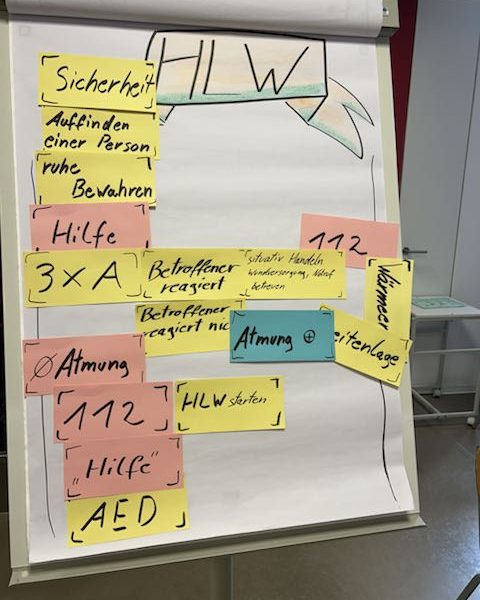 HLW
Sicherheit
Auffinden
einer Person
ruhe
Bewahren
Hilfe
112
3xA
Betroffener
reagiert
situativ Handeln
Wundversorgung, Notruf
betreuen
Betroffener
reagiert nic
Atmung ⊕
Wärmeer
eitenlage
∅ Atmung
112
HLW starten
„Hilfe"
AED